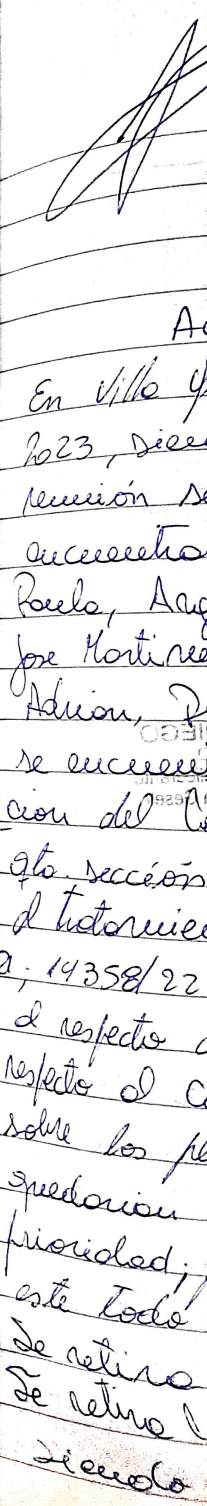 Ac
En Villa Y
2023, sien
reunión de
encuentra
Paula, Ang
Jose Martine
Adrian, D
se encuen
cion del Co
gto. sección
el tratamien
14358/22
al respecto
respecto al C
sobre los pe
quedarian
prioridad;
este todo
Se retira
Se retira
siendo